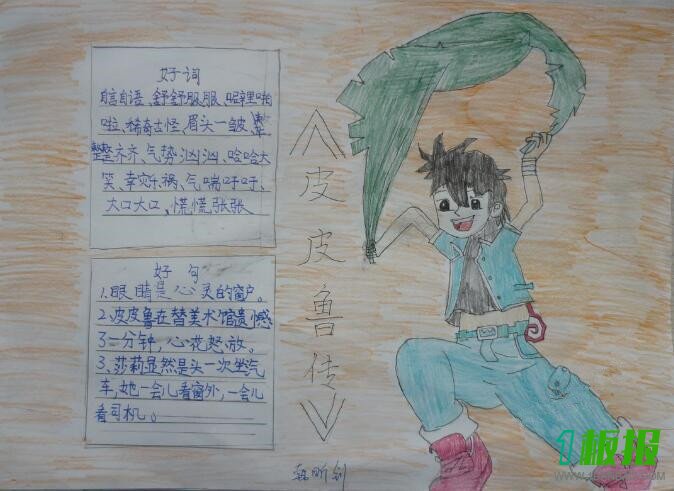 好词
自言自语、舒舒服服、噼里啪
啦、稀奇古怪、眉头一皱、整
整齐齐、气势汹汹、哈哈大
笑、幸灾乐祸、气喘吁吁、
大口大口、慌慌张张
好句
1.眼睛是心灵的窗户。
2、皮皮鲁在替美术馆遗憾
3=分钟,心花怒放。
3、莎莉显然是头一次坐汽
车,她一会儿看窗外,一会儿
看司机。
《皮皮鲁传》
1板报